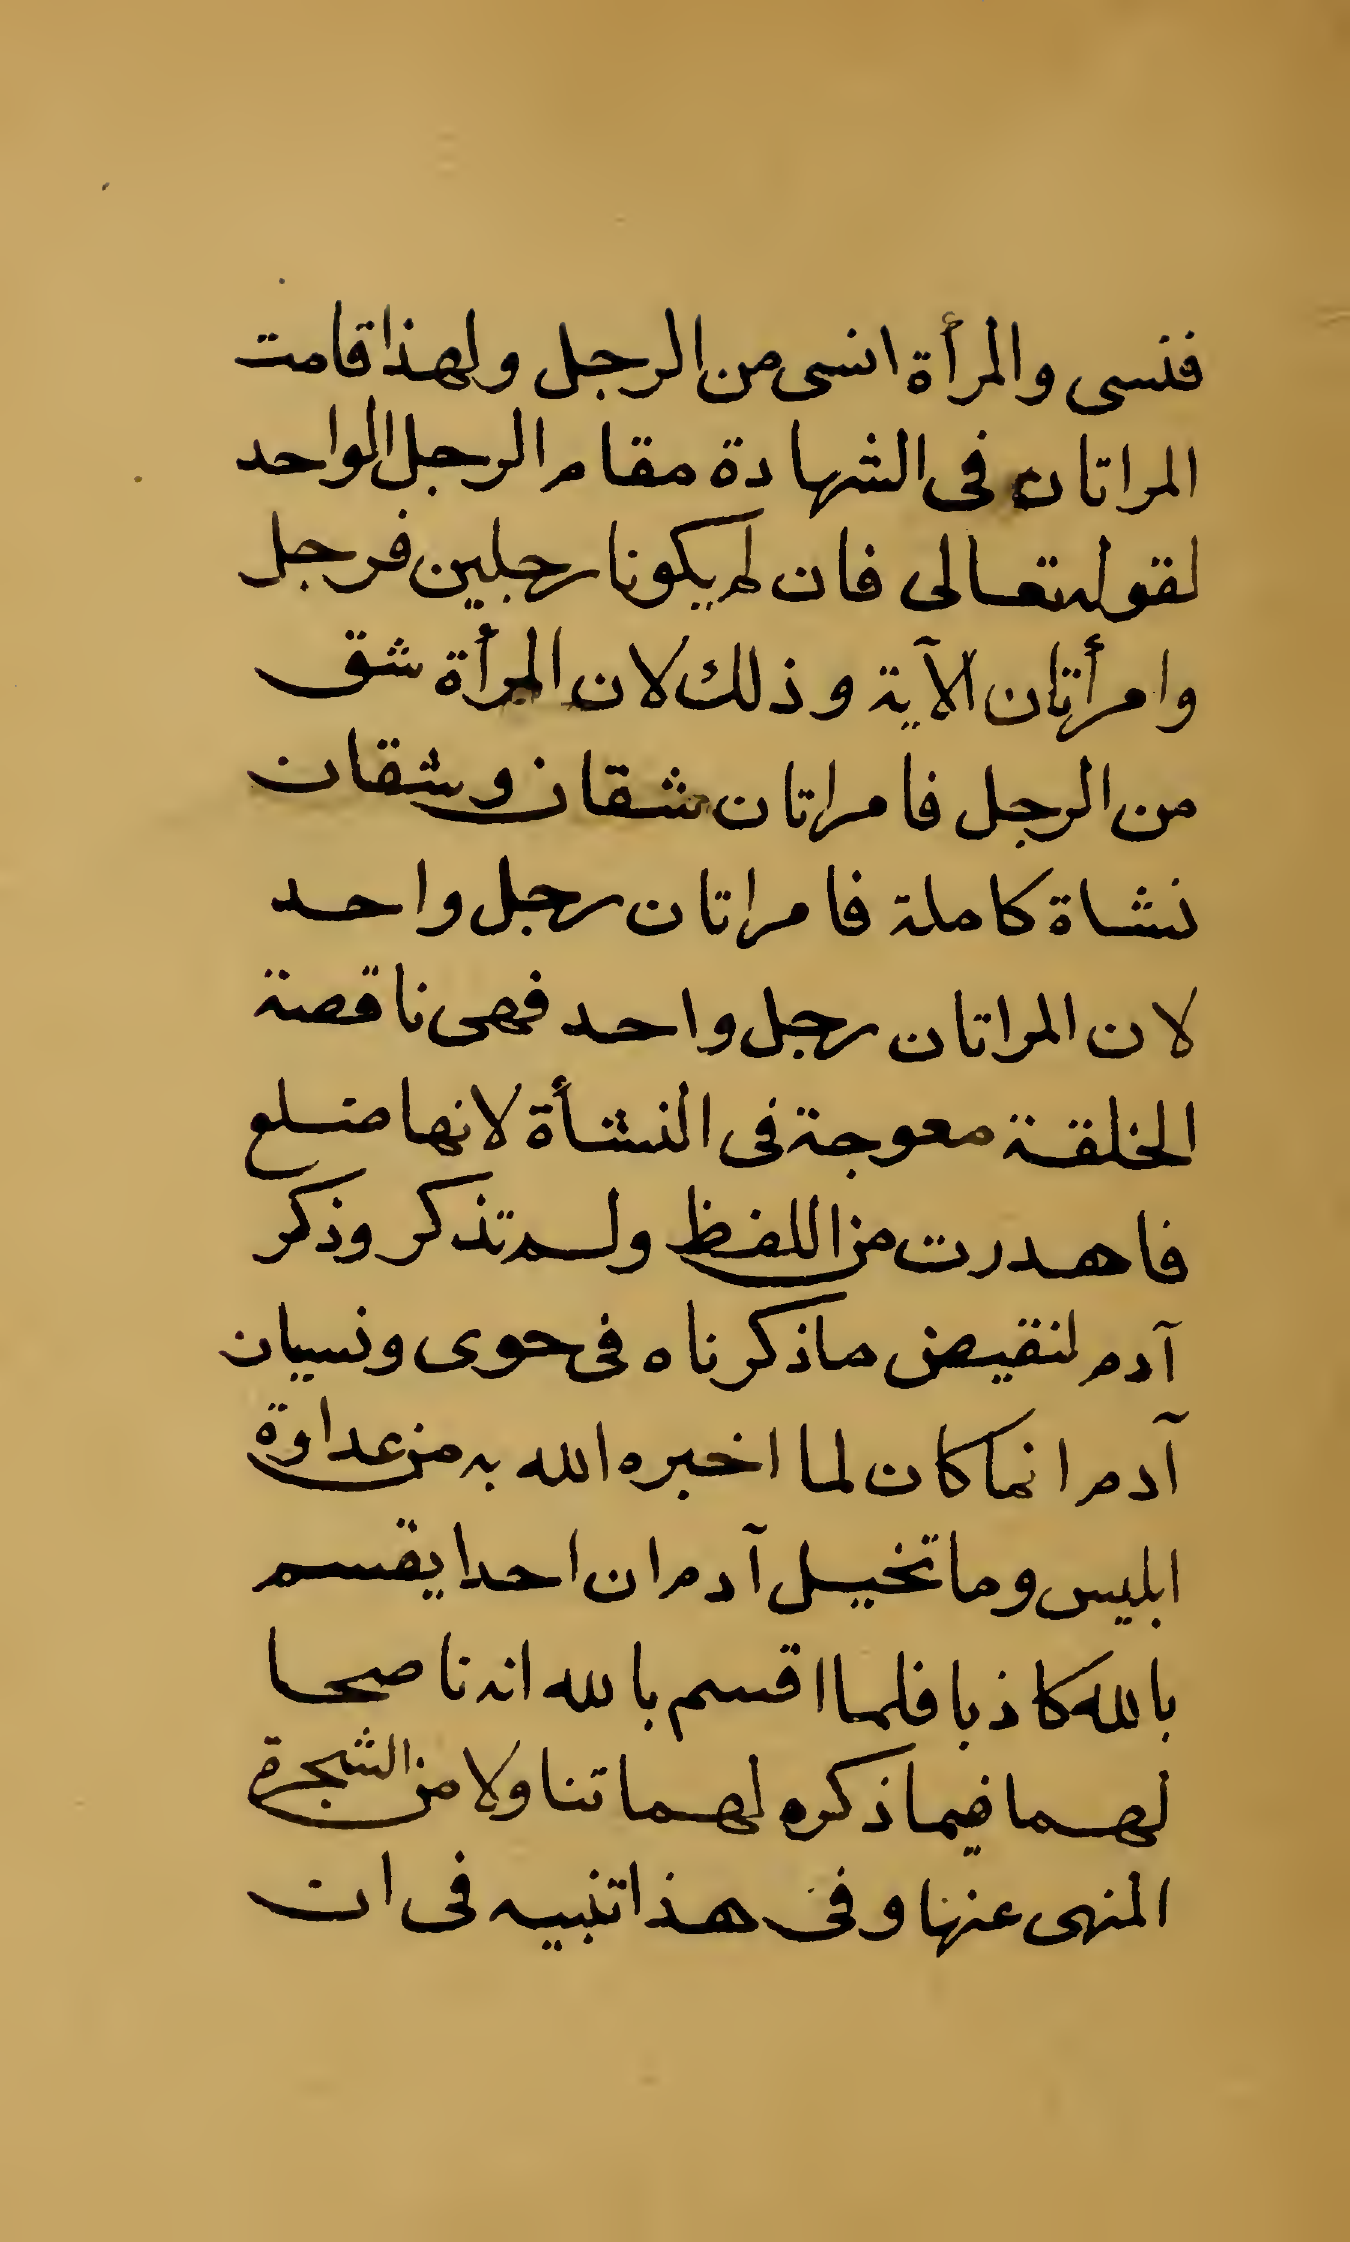 فنسى والمرأة انسى من الرجل ولهذا قامت
المراتان فى الشهادة مقام الرجل الواحد
لقوله تعالى فان لم يكونا رجلين فرجل
وامرأتان الآية وذلك لان المرأة شق
من الرجل فامراتان شقان وشقان
نشاة كاملة فامراتان رجل واحد
لان المراتان رجل واحد فهى ناقصة
الخلقة معوجة فى النشأة لانها ضلع
فاهدرت من اللفظ ولم تذكر وذكر
آدم لنقيض ماذكرناه فى حوى ونسيان
آدم انما كان لما اخبره الله به من عداوة
ابليس وما تخيل آدم ان احدا يقسم
بالله كاذبا فلما اقسم بالله انه ناصحا
لهما فيما ذكره لهما تناولا من الشجرة
المنهى عنها وفى هذا تنبيه فى ان